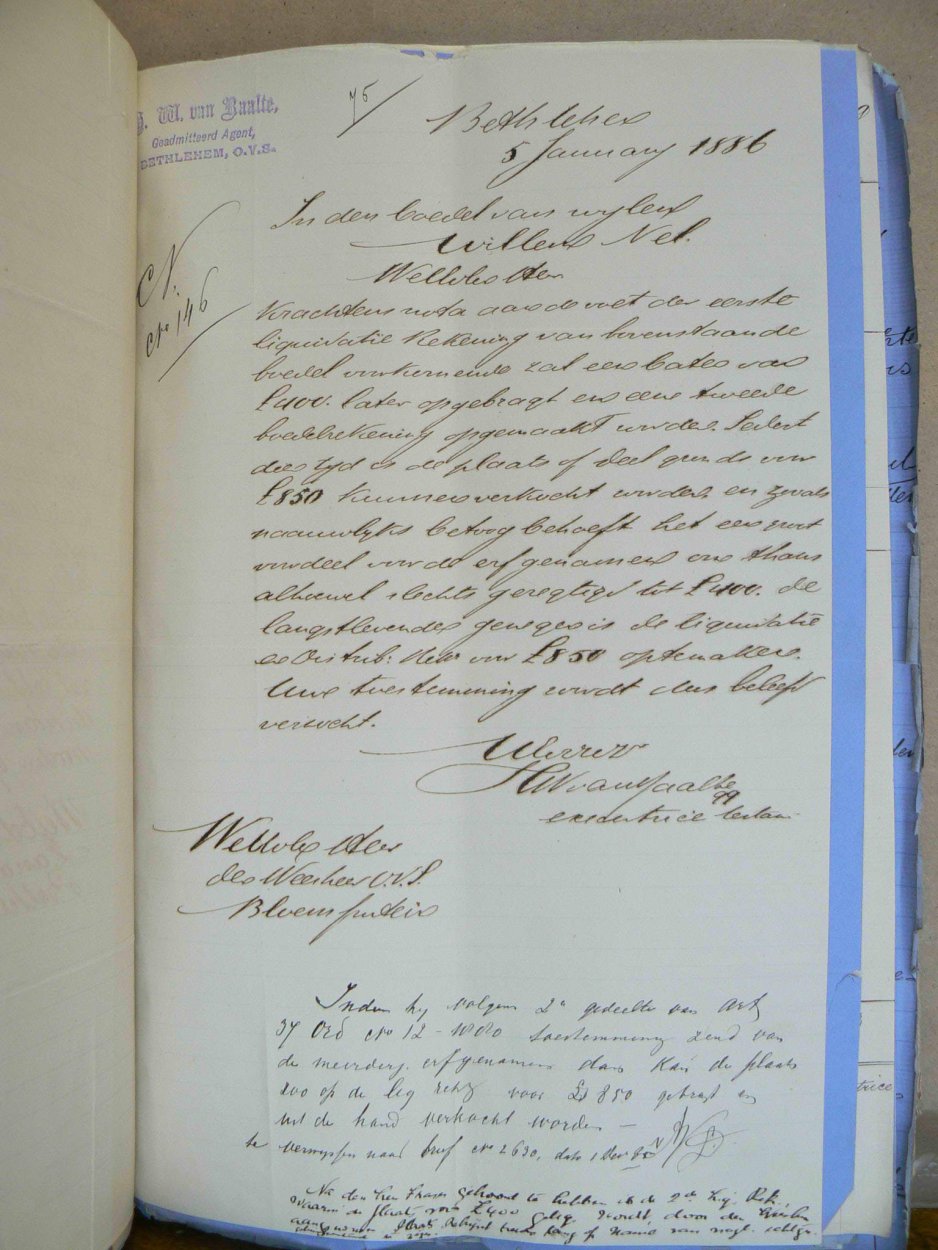 W. van Baalte,
Geadmitteerd Agent,
BETHLEHEM, O.V.S.
75/
Bethlehem
5 January 1886
In den boedel van wylen
Willem Nel.
WelEdle Heer
No 146
Krachtens nota aan de voet der eerste
liquidatie Rekening van bovenstaande
boedel voorkomende zal een bate van
£400. later opgebragt en eene tweede
boedelrekening opgemaakt worden. Sedert
dien tyd is de plaats of deel gronds voor
£850 kunnen verkocht worden, en zooals
naauwlyks betoog behoeft het een groot
voordeel voor de erfgenamen ons thans
alhoewel slechts geregtigd tot £400. de
langstlevende genegen is de liquidatie
en Distrib: Rek: voor £850 optemaken.
Uwe toestemming wordt dus beleefd
verwacht.
UEdDr
HW van Baalte
qq
executrice testam:
WelEdle Heer
den Weesheer O.V.S.
Bloemfontein
Indien hy volgens 2e gedeelte van Art
37 Ord No 12 - 1880 toestemming zend van
de meerderj. erfgenamen dan kan de plaats
zoo op de liq voor £850 gebragt en
uit de hand verkocht worden —
te verwyzen naar brief No 2630, dato 1 Dec 85
Na den Heer gehoord te hebben is de 2de Liq. Rek.
waarin de plaats voor £400 wordt, door den